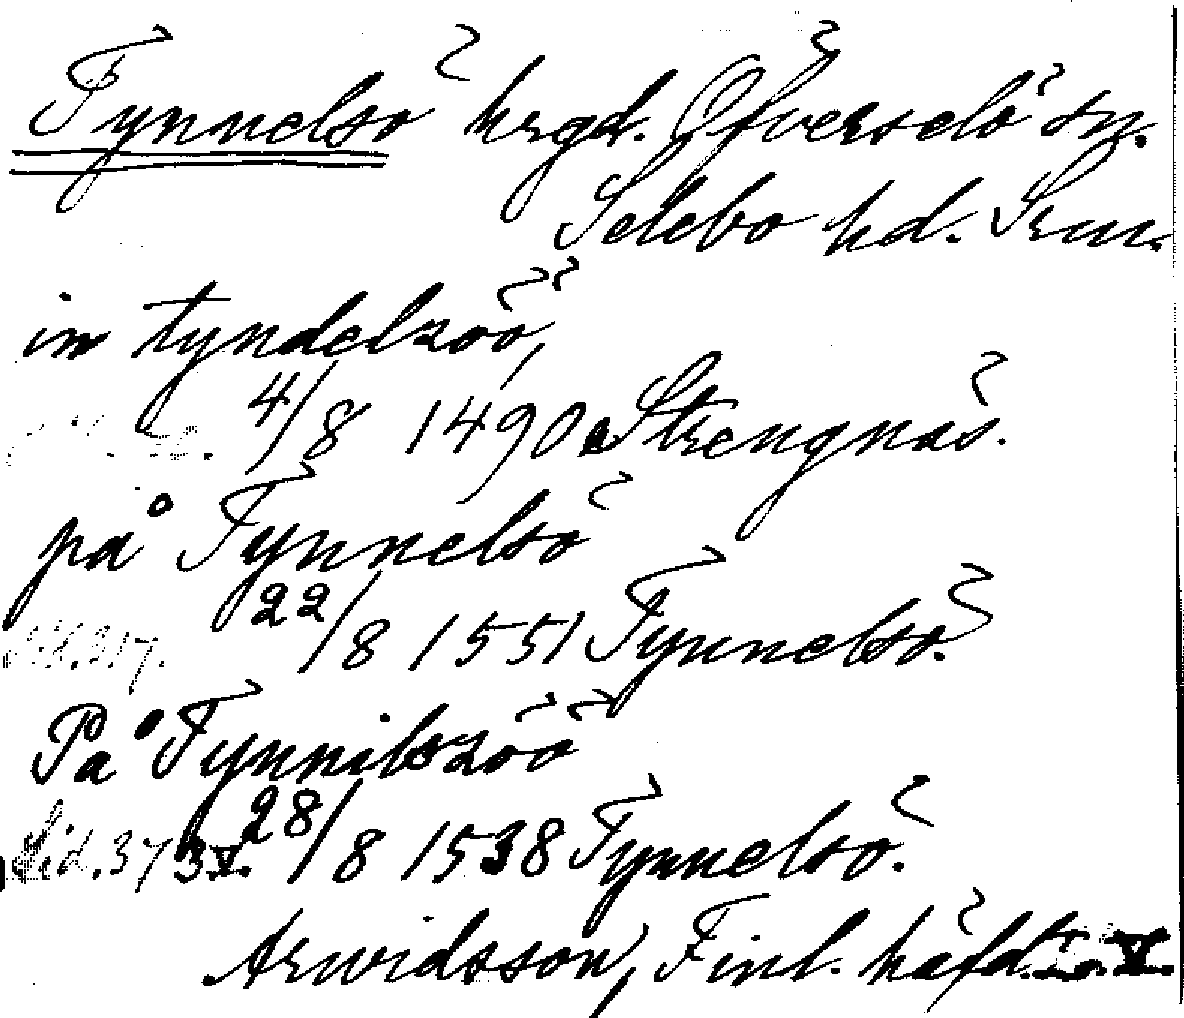 Tynnelsö hrgd. Öfverselö sn.
Selebo hd. Srm.
in tyndelzöö,
4/8 1490 Strengnäs.
på Tynnelsö
22/8 1551 Tynnelsö.
På Tynnilszöö
Sid. 37 28/8 1538 Tynnelsö.
Arwidsson, Finl. häfd.